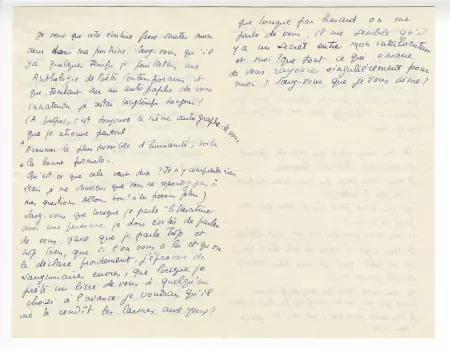 Je veux que cette écriture fasse sauter mon
cœur dans ma poitrine. Savez-vous qu'il
y a quelques temps je feuilletais une
Anthologie de Poésie contemporaine et
que, tombant sur un autographe de vous
inattendu, je restai longtemps songeuse ?
(A propos, c'est toujours le même autographe de vous
que je retrouve partout
"Assumer le plus possible d'humanité, voilà
"la bonne formule".
Qu'est ce que cela veut dire ? Je n'y comprends rien
Mais je me souviens que vous ne répondez pas à
mes questions. Allons, bon ! n'en posons plus)
Savez-vous que lorsque je parle "littérature"
avec une personne je dois éviter de parler
de vous, parce que je parle trop et
trop bien, que si l'on vous a lu et qu'on
le déclare froidement, j'éprouve de
sanguinaires envies, que lorsque je
prête un livre de vous à quelqu'un
choisi à l'avance je voudrais qu'il
me le rendît les larmes aux yeux ?
que lorsque par hasard on me
parle de vous, il me semble qu'il
y a un secret entre mon interlocuteur
et moi ? que tout ce qui émane
de vous rayonne singulièrement pour
moi ? Savez-vous que je vous aime ?